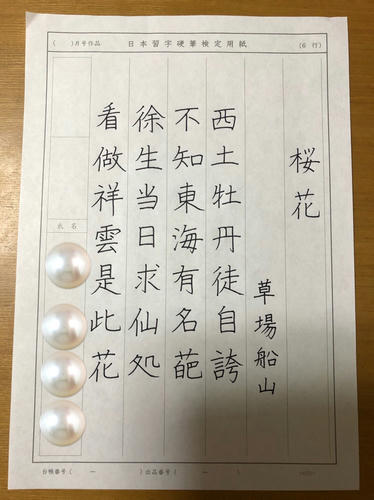 ( )月号作品 日本習字硬筆検定用紙 (6 行)
桜花
草場船山
西土牡丹徒自誇
不知東海有名葩
徐生当日求仙処
看做祥雲是此花
氏名
台帳番号( ー ) 出品番号( ー )